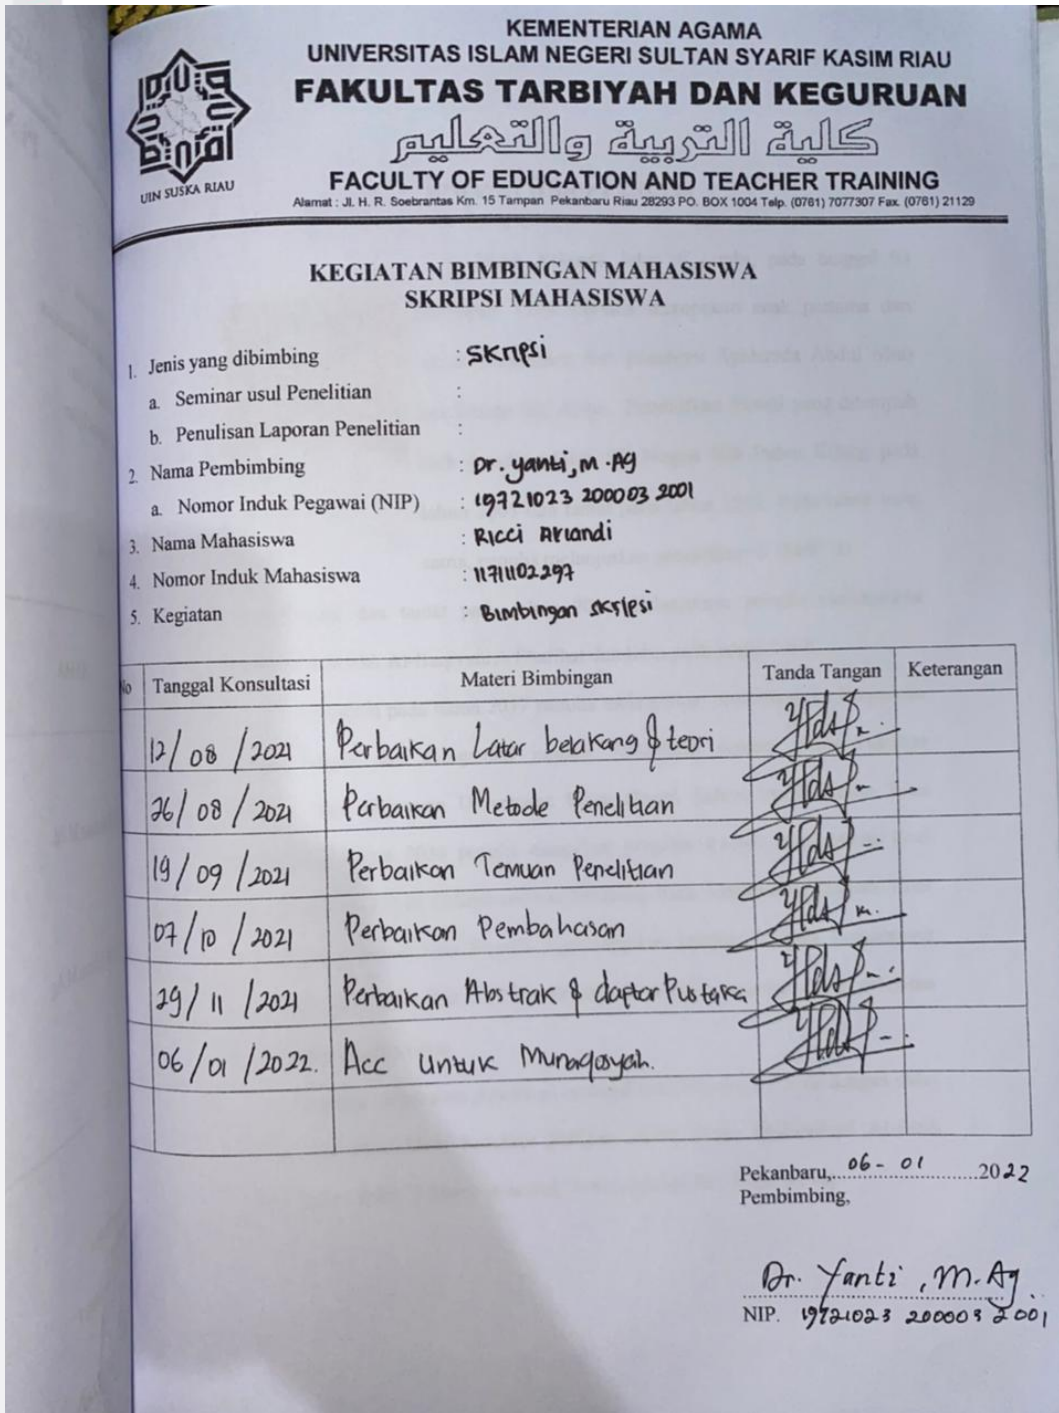 KEMENTERIAN AGAMA
UNIVERSITAS ISLAM NEGERI SULTAN SYARIF KASIM RIAU
FAKULTAS TARBIYAH DAN KEGURUAN
كلية التربية والتعليم
FACULTY OF EDUCATION AND TEACHER TRAINING
Alamat : Jl. H. R. Soebrantas Km. 15 Tampan Pekanbaru Riau 28293 PO. BOX 1004 Telp. (0761) 7077307 Fax. (0761) 21129
UIN SUSKA RIAU
KEGIATAN BIMBINGAN MAHASISWA
SKRIPSI MAHASISWA
1. Jenis yang dibimbing : Skripsi
a. Seminar usul Penelitian :
b. Penulisan Laporan Penelitian :
2. Nama Pembimbing : Dr. yanti, M.Ag
a. Nomor Induk Pegawai (NIP) : 19721023 200003 2001
3. Nama Mahasiswa : Ricci Ariandi
4. Nomor Induk Mahasiswa : 11711102297
5. Kegiatan : Bimbingan skripsi
No Tanggal Konsultasi Materi Bimbingan Tanda Tangan Keterangan
12/08/2021 Perbaikan Latar belakang & teori
26/08/2021 Perbaikan Metode Penelitian
19/09/2021 Perbaikan Temuan Penelitian
07/10/2021 Perbaikan Pembahasan
29/11/2021 Perbaikan Abstrak & daptar Pustaka
06/01/2022. Acc untuk Munaqosyah.
Pekanbaru,..06-01..2022
Pembimbing,
Dr. Yanti, M.Ag
NIP. 19721023 200003 2001